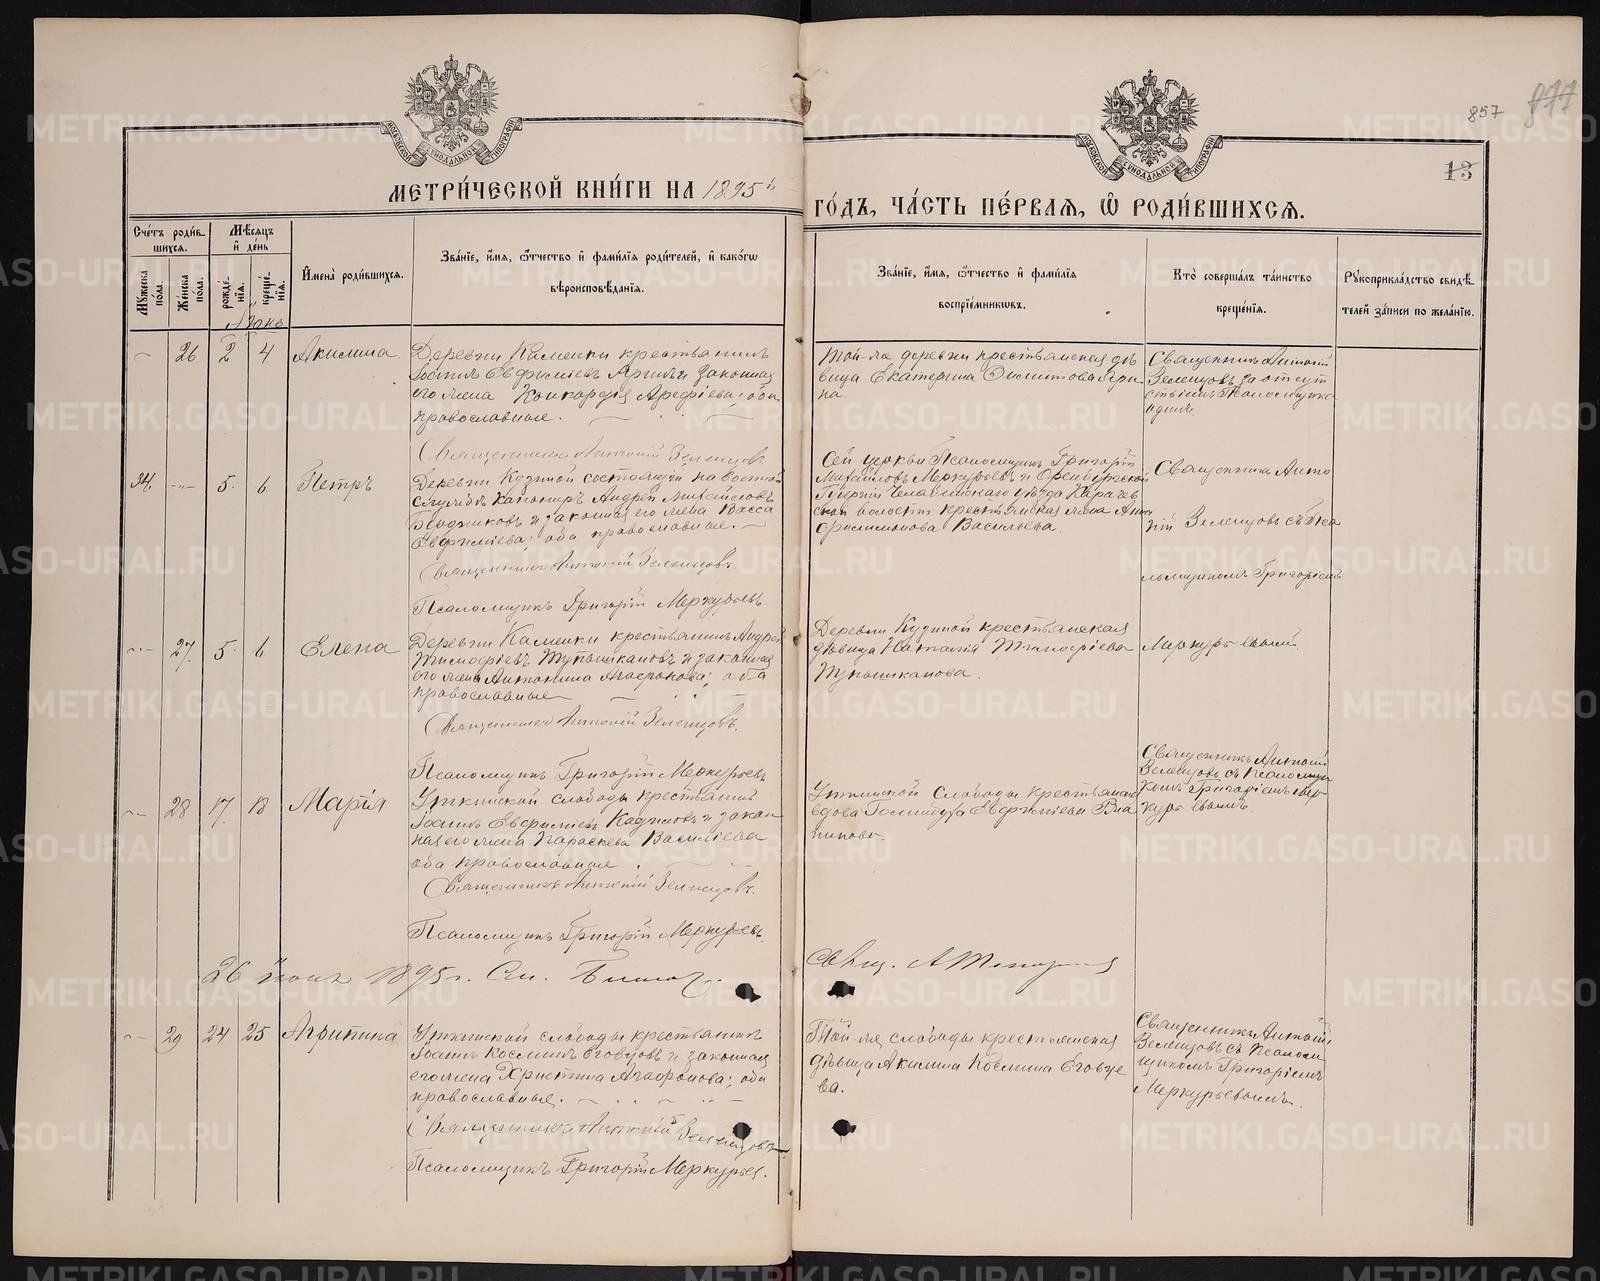 857 877
13
МЕТРИ́ЧЕСКОЙ КНИ́ГИ НА 1895 й
ГО́ДЪ, ЧА́СТЬ ПЕ́РВАЯ, Ѡ РОДИ́ВШИХСЯ.
Сче́тъ роди́в-
шихся.
Му́жеска пола.
Же́нска пола.
Мѣ́сяцъ
и де́нь
рожде́-
нїя.
креще́-
нїя.
Іюнь
И҆мена̀ роди́вшихся.
Зва́нїе, и҆́мя, ѻ҆́тчество и҆ фами́лїя роди́телей, и҆ како́гѡ
вѣроисповѣ́данїя.
Зва́нїе, и҆́мя, ѻ҆́тчество и҆ фами́лїя
воспрїе́мниковъ.
Кто̀ соверша́лъ та́инство
креще́нїя.
Рꙋкоприкла́дство свидѣ́-
телей за́писи по жела́нїю.
26 2 4 Акилина
Деревни Каменки крестьянинъ
Евфиміевъ и законная
его жена Конкордія Арефіева; оба
православные.
Священникъ Антоній Зеленцовъ
Той-же деревни крестьянская дѣ
вица Екатерина
на.
Священникъ Антоній
Зеленцовъ за отсут
ствіемъ Псаломщика
одинъ.
34. 5. 6. Петръ
Деревни Кузиной состоящій на
службѣ Канониръ Андрей Михайловъ
и законная его жена Васса
Евфиміева; оба православные.
Священникъ Антоній Зеленцовъ
Псаломщикъ Григорій Меркурьевъ
Сей церкви Псаломщикъ Григорій
Михайловъ Меркурьевъ и Оренбургской
Губерніи Челябинскаго уѣзда
ской волости крестьянская жена Анна
Филимонова Васильева.
Священникъ Анто
ній Зеленцовъ съ Пса
ломщикомъ Григоріемъ
Меркурьевымъ.
27. 5. 6 Елена
Деревни Каменки крестьянинъ Андрей
Тимофіевъ и законная
его жена Антонина Агафонова; оба
православные
Священникъ Антоній Зеленцовъ.
Псаломщикъ Григорій Меркурьевъ
Деревни Кузиной крестьянская
дѣвица Наталія Тимофіева
28 17. 18 Марія
Уткинской слободы крестьянинъ
Іоаннъ Евфиміевъ и закон
ная его жена Параскева Василіева
оба православные.
Священникъ Антоній Зеленцовъ.
Псаломщикъ Григорій Меркурьевъ.
Уткинской Слободы крестьянская
вдова Евфиміева
Священникъ Антоній
Зеленцовъ съ Псаломщи
комъ Григоріемъ Мер-
курьевымъ.
26 Іюня 1895 г.
29 24 25 Агрипина
Уткинской слободы крестьянинъ
Іоаннъ Косминъ Еговцовъ и законная
его жена Христина Агафонова; оба
православные.
Священникъ Антоній Зеленцовъ
Псаломщикъ Григорій Меркурьев.
Той-же слободы крестьянская
дѣвица Акилина Космина Еговце
ва.
Священникъ Антоній
Зеленцовъ съ Псалом
щикомъ Григоріемъ
Меркурьевымъ.
METRIKI.GASO-URAL.RU